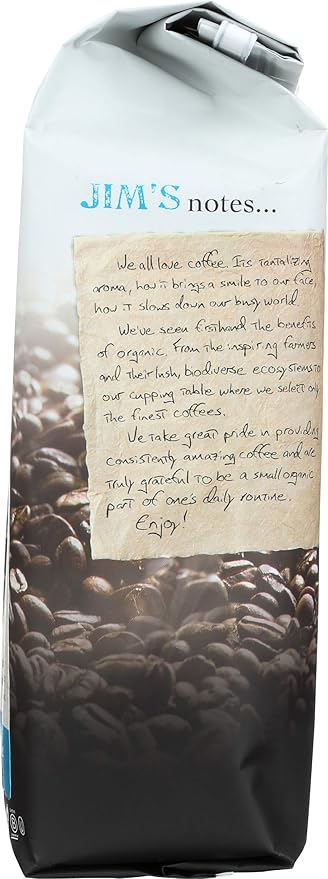 JIM'S notes...
We all love coffee. Its tantalizing
aroma, how it brings a smile to our face,
how it slows down our busy world.
We've seen firsthand the benefits
of organic. From the inspiring farmers
and their lush, biodiverse ecosystems to
our cupping table where we select only
the finest coffees.
We take great pride in providing
consistently amazing coffee and are
truly grateful to be a small organic
part of one's daily routine.
Enjoy!